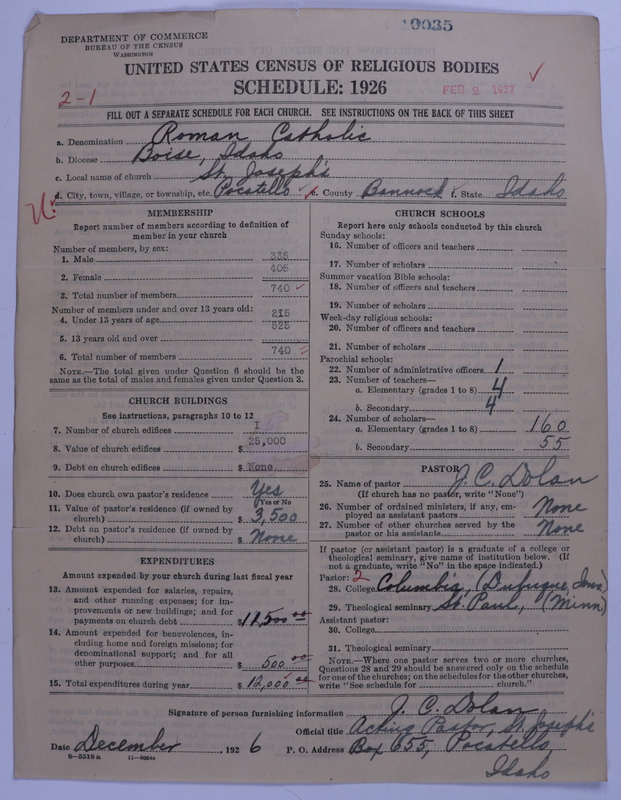 19035
DEPARTMENT OF COMMERCE
BUREAU OF THE CENSUS
WASHINGTON
UNITED STATES CENSUS OF RELIGIOUS BODIES
SCHEDULE: 1926
FEB 2 1927
2-1
FILL OUT A SEPARATE SCHEDULE FOR EACH CHURCH. SEE INSTRUCTIONS ON THE BACK OF THIS SHEET
a. Denomination Roman Catholic
b. Diocese Boise, Idaho
c. Local name of church St. Joseph's
d. City, town, village, or township, etc. Pocatello e. County Bannock f. State Idaho
MEMBERSHIP
Report number of members according to definition of
member in your church
Number of members, by sex:
1. Male 335
2. Female 405
3. Total number of members 740
Number of members under and over 13 years old:
4. Under 13 years of age 215
5. 13 years old and over 525
6. Total number of members 740
NOTE.—The total given under Question 6 should be
the same as the total of males and females given under Question 3.
CHURCH BUILDINGS
See instructions, paragraphs 10 to 12
7. Number of church edifices I
8. Value of church edifices $ 25,000
9. Debt on church edifices $ None
10. Does church own pastor's residence Yes
Yes or No
11. Value of pastor's residence (if owned by
church) $ 3,500
12. Debt on pastor's residence (if owned by
church) $ None
EXPENDITURES
Amount expended by your church during last fiscal year
13. Amount expended for salaries, repairs,
and other running expenses; for im-
provements or new buildings; and for
payments on church debt $ 11,500 00
14. Amount expended for benevolences, in-
cluding home and foreign missions; for
denominational support; and for all
other purposes $ 500 00
15. Total expenditures during year $ 12,000 00
CHURCH SCHOOLS
Report here only schools conducted by this church
Sunday schools:
16. Number of officers and teachers
17. Number of scholars
Summer vacation Bible schools:
18. Number of officers and teachers
19. Number of scholars
Week-day religious schools:
20. Number of officers and teachers
21. Number of scholars
Parochial schools:
22. Number of administrative officers 1
23. Number of teachers—
a. Elementary (grades 1 to 8) 4
b. Secondary 4
24. Number of scholars—
a. Elementary (grades 1 to 8) 160
b. Secondary 55
PASTOR
25. Name of pastor J. C. Dolan
(If church has no pastor, write "None")
26. Number of ordained ministers, if any, em-
ployed as assistant pastors None
27. Number of other churches served by the
pastor or his assistants None
If pastor (or assistant pastor) is a graduate of a college or
theological seminary, give name of institution below. (If
not a graduate, write "No" in the space indicated.)
Pastor: 2
28. College Columbia, (Dubuque, Iowa)
29. Theological seminary St. Paul, (Minn.)
Assistant pastor:
30. College
31. Theological seminary
NOTE.—Where one pastor serves two or more churches,
Questions 28 and 29 should be answered only on the schedule
for one of the churches; on the schedules for the other churches,
write "See schedule for church."
Signature of person furnishing information J. C. Dolan
Official title Acting Pastor, St. Joseph's
Date December, 1926 P. O. Address Box 655, Pocatello,
Idaho
8-5518a